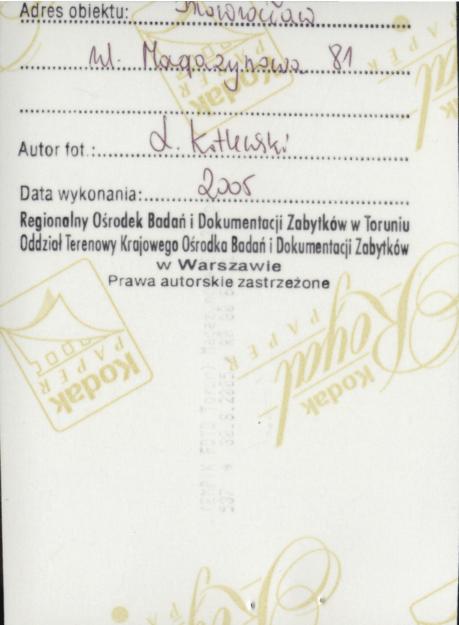 Adres obiektu: Inowrocław
ul. Magazynowa 81
Autor fot.: L. Kotlewski
Data wykonania: 2005
Regionalny Ośrodek Badań i Dokumentacji Zabytków w Toruniu
Oddział Terenowy Krajowego Ośrodka Badań i Dokumentacji Zabytków
w Warszawie
Prawa autorskie zastrzeżone
Kodak
Royal
PAPER
Kodak
PAPER
Kodak
Royal
PAPER